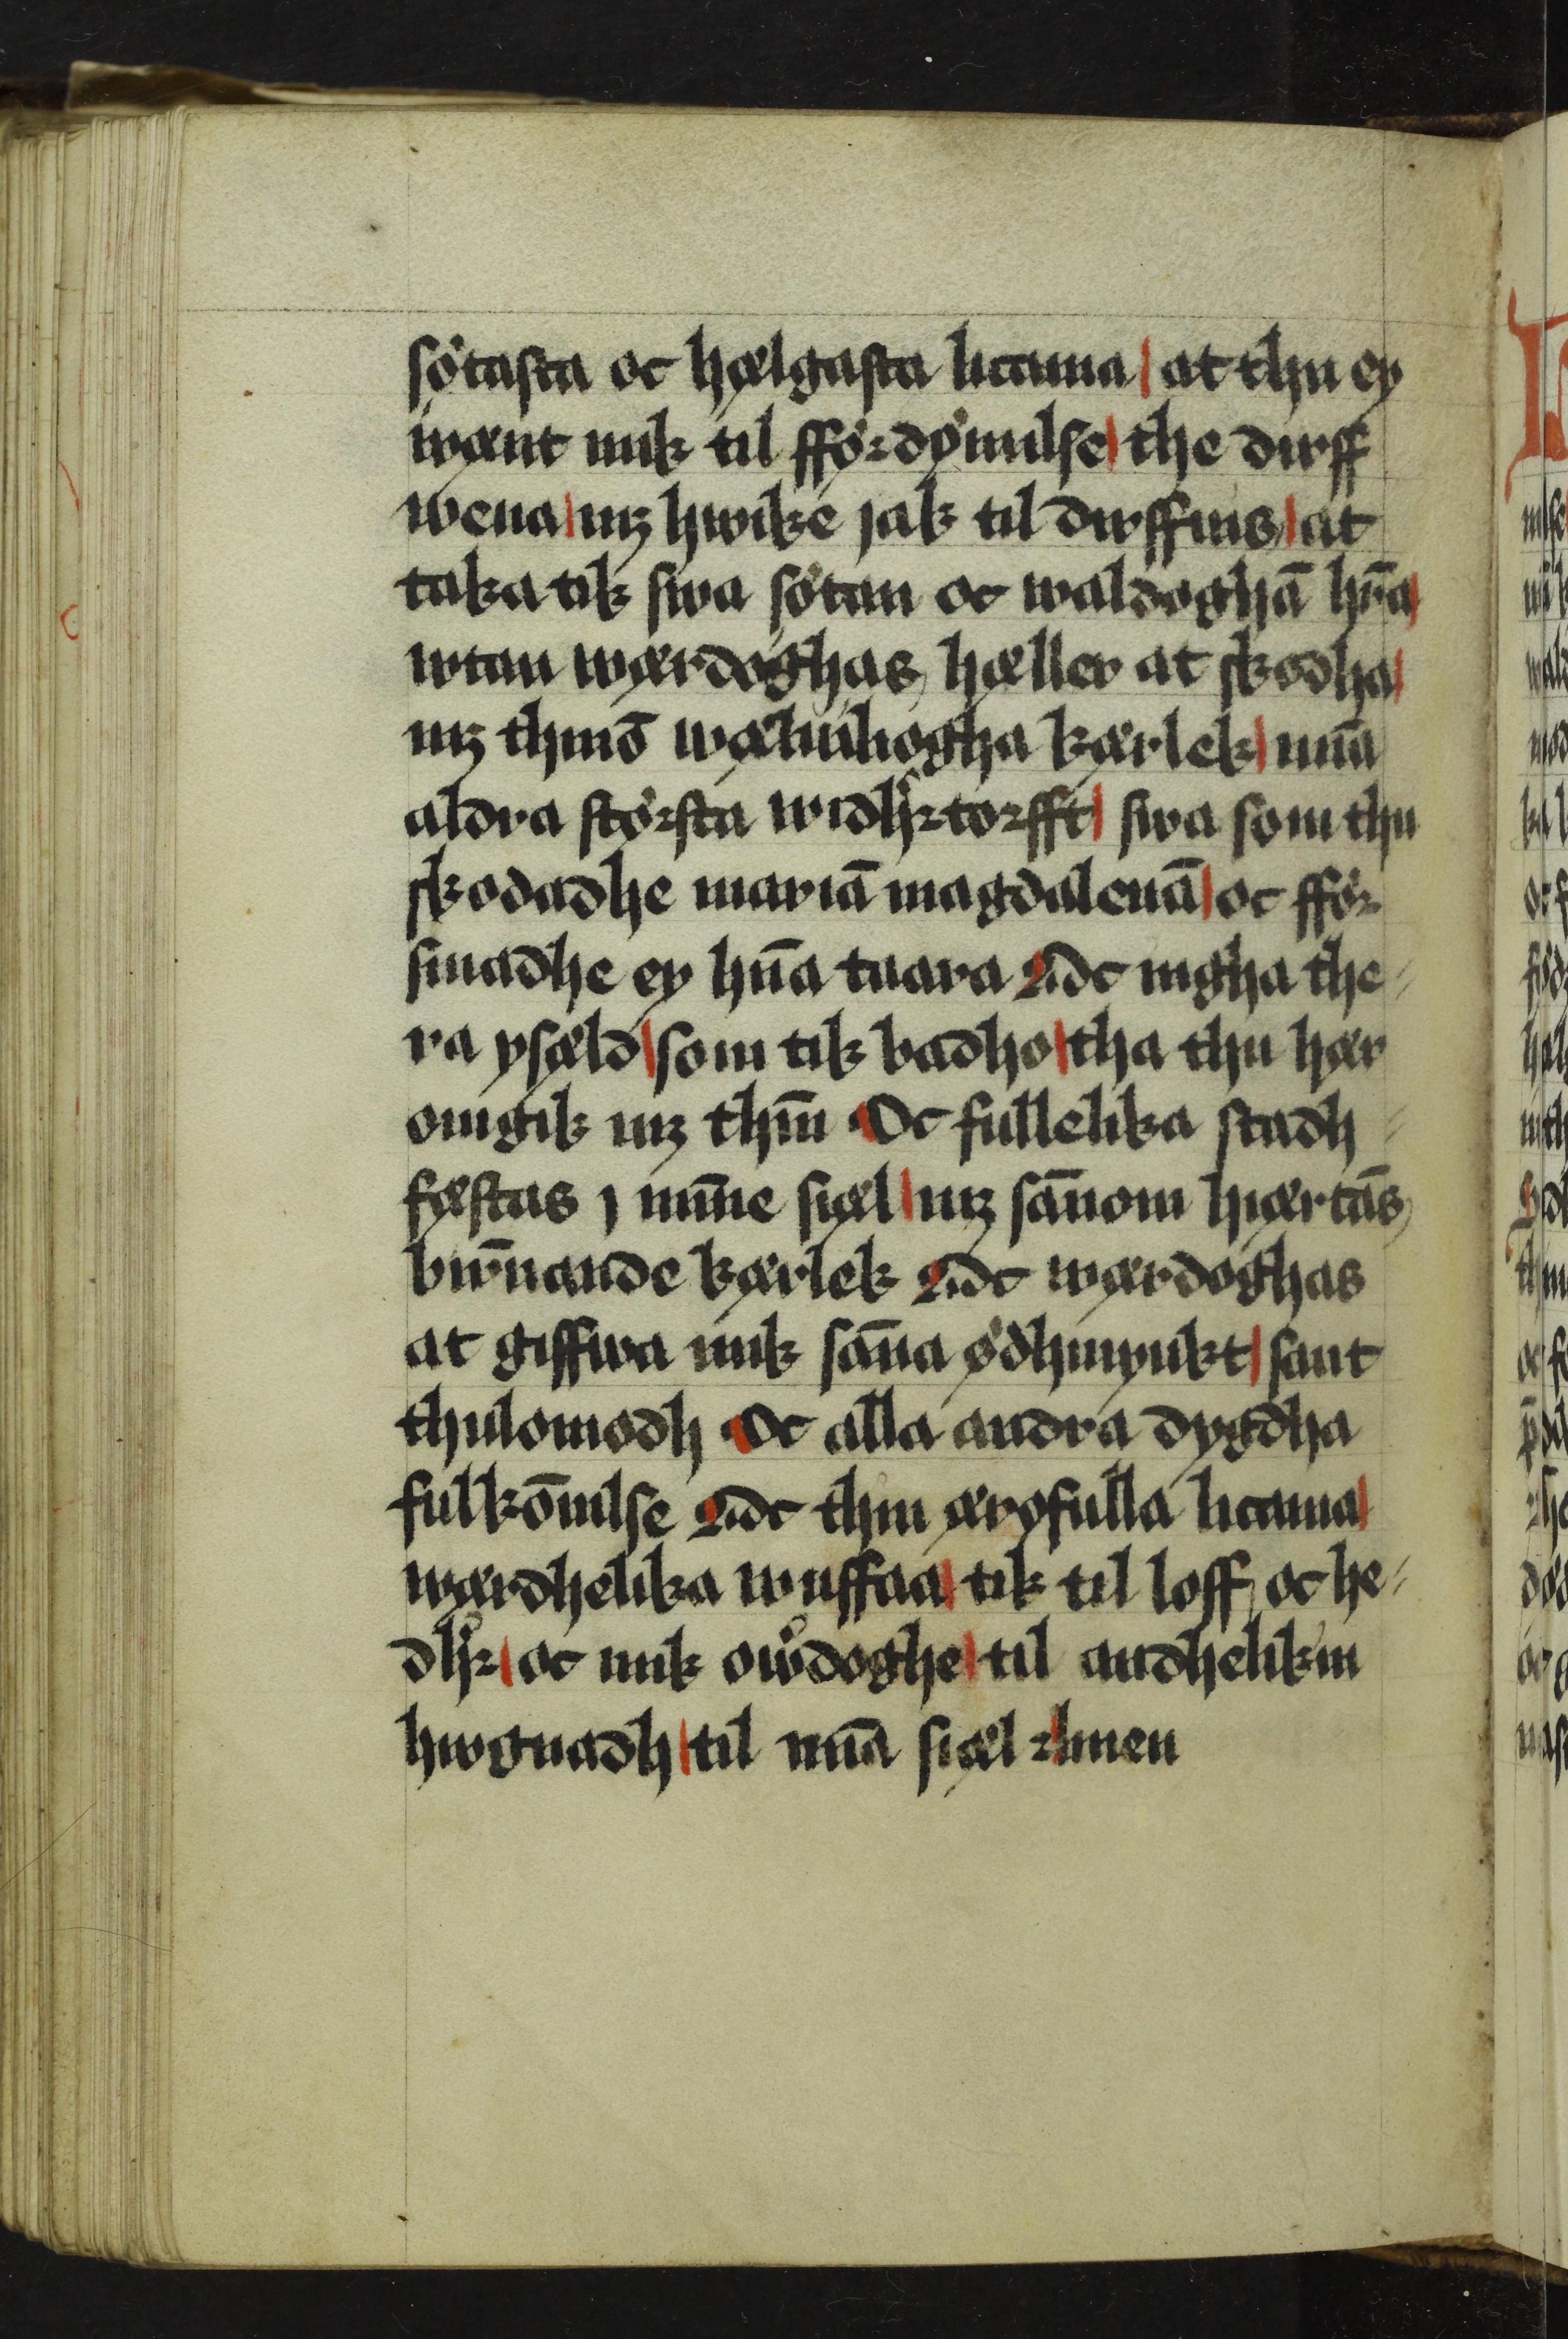 sötasta oc hælgasta licama / at thu ey
wænt mik til ffördömilse / the dirff
wena / mz hwike jak til dirffuis / at
taka tik swa sötan oc waldoghā hr̄a /
wtan wærdoghas hæller at skodha /
mz thinō wæluiliogha kærlek / mīa
aldra största widhrtorfft / swa som thu
skodadhe mariā magdalenā / oc fför
smadhe ey hn̄a taara Oc ingha the=
ra ysæld / som tik badho / tha thu hær
omgik mz thīm Oc fullelika stadh=
fæstas j mīne siæl / mz sānom hiærtās
brīnande kærlek Oc wærdoghas
at giffwa mik sāna ödhmyukt / sant
thulomodh Oc alla andra dygdha
fulkōmilse Oc thin ærofulla licama /
wærdhelika wnffaa / tik til loff oc he=
dhr / oc mik owͦdoghe / til andhelikin
hwgnadh / til mīa siæl Amen